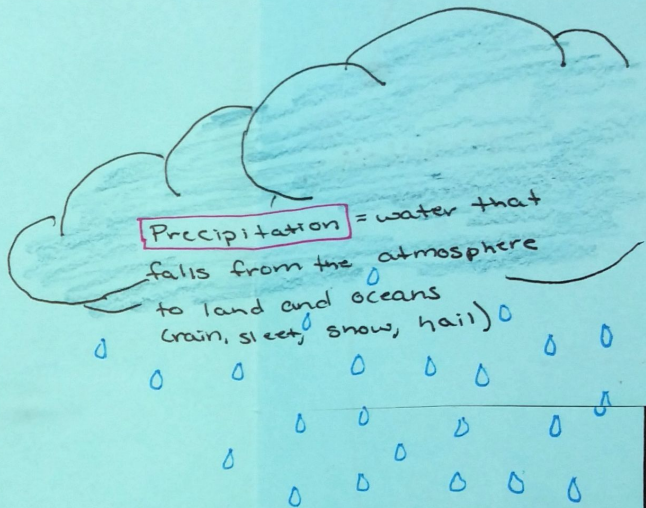 Precipitation = water that
falls from the atmosphere
to land and oceans
(rain, sleet, snow, hail)